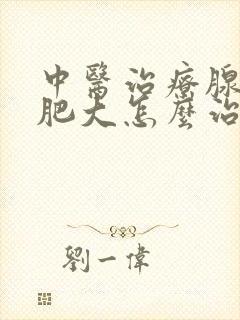 中醫治療腺
肥大怎麼治
劉一偉